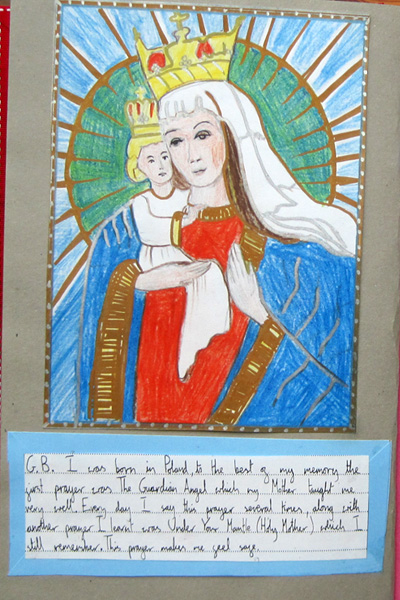 G.B. I was born in Poland, to the best of my memory the
first prayer was The Guardian Angel which my Mother taught me
very well. Every day I say this prayer several times, along with
another prayer I learnt was Under Your Mantle (Holy Mother) which I
still remember. This prayer makes me feel safe.